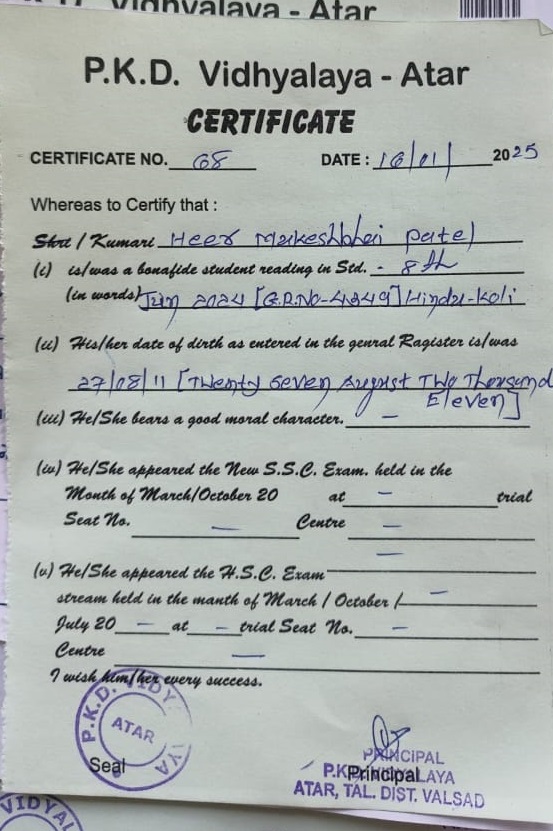 Vidhyalaya - Atar
P.K.D. Vidhyalaya - Atar
CERTIFICATE
CERTIFICATE NO. 68 DATE : 16/01/ 2025
Whereas to Certify that :
Shri / Kumari Heer Mukeshbhai Patel
(c) is/was a bonafide student reading in Std. - 8th
(in words) Jun 2024 [G.R.NO-4849] Hindu-Koli
(ii) His/her date of dirth as entered in the genral Ragister is/was
27/08/11 [Twenty Seven August Two Thousand
Eleven]
(iii) He/She bears a good moral character. -
(iv) He/She appeared the New S.S.C. Exam. held in the
Month of March/October 20 at - trial
Seat No. - Centre -
-
(v) He/She appeared the H.S.C. Exam
stream held in the manth of March / October / -
July 20 - at - trial Seat No. -
Centre -
I wish him/her every success.
P.K.D. VIDYALAYA
ATAR
Seal
PRINCIPAL
Principal
ATAR, TAL. DIST. VALSAD
VIDYAL